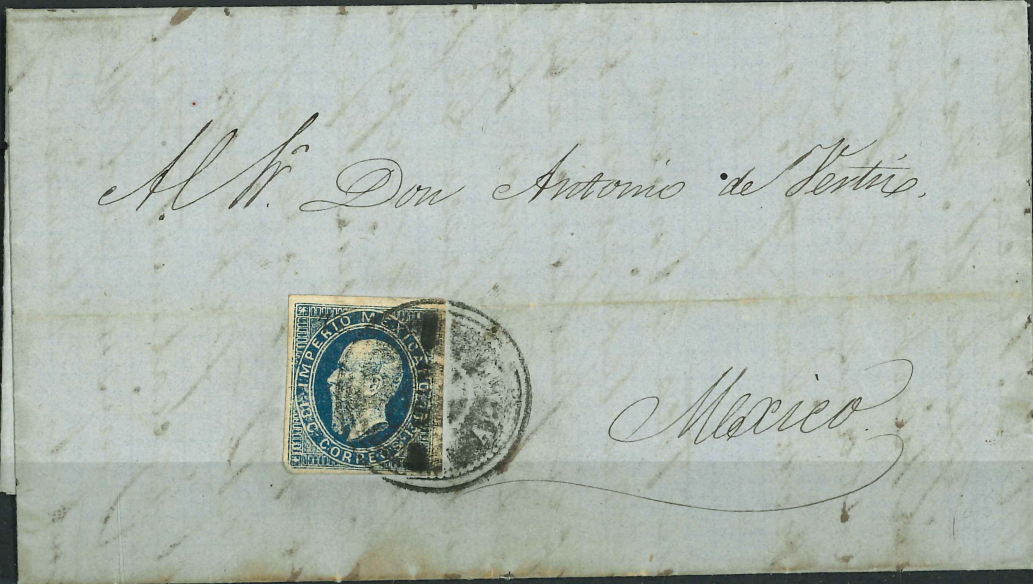 Al Sr. Don Antonio de Vertiz.
IMPERIO MEXICANO
13 C. CORREOS
Mexico